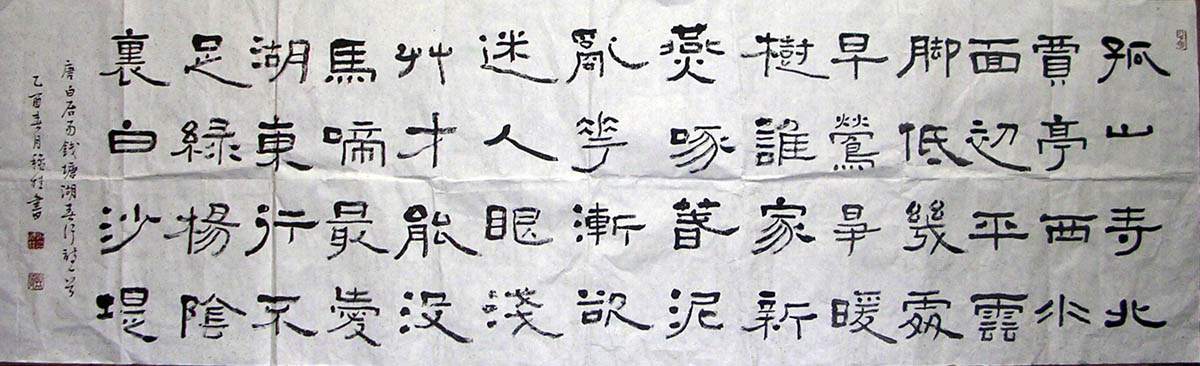 孤山寺北
賈亭西水
面初平雲
脚低幾處
早鶯爭暖
樹誰家新
燕啄春泥
亂花漸欲
迷人眼淺
艸才能没
馬啼最愛
湖東行不
足綠楊陰
裏白沙堤
唐白居易錢塘湖春行詩一首
乙酉春月書